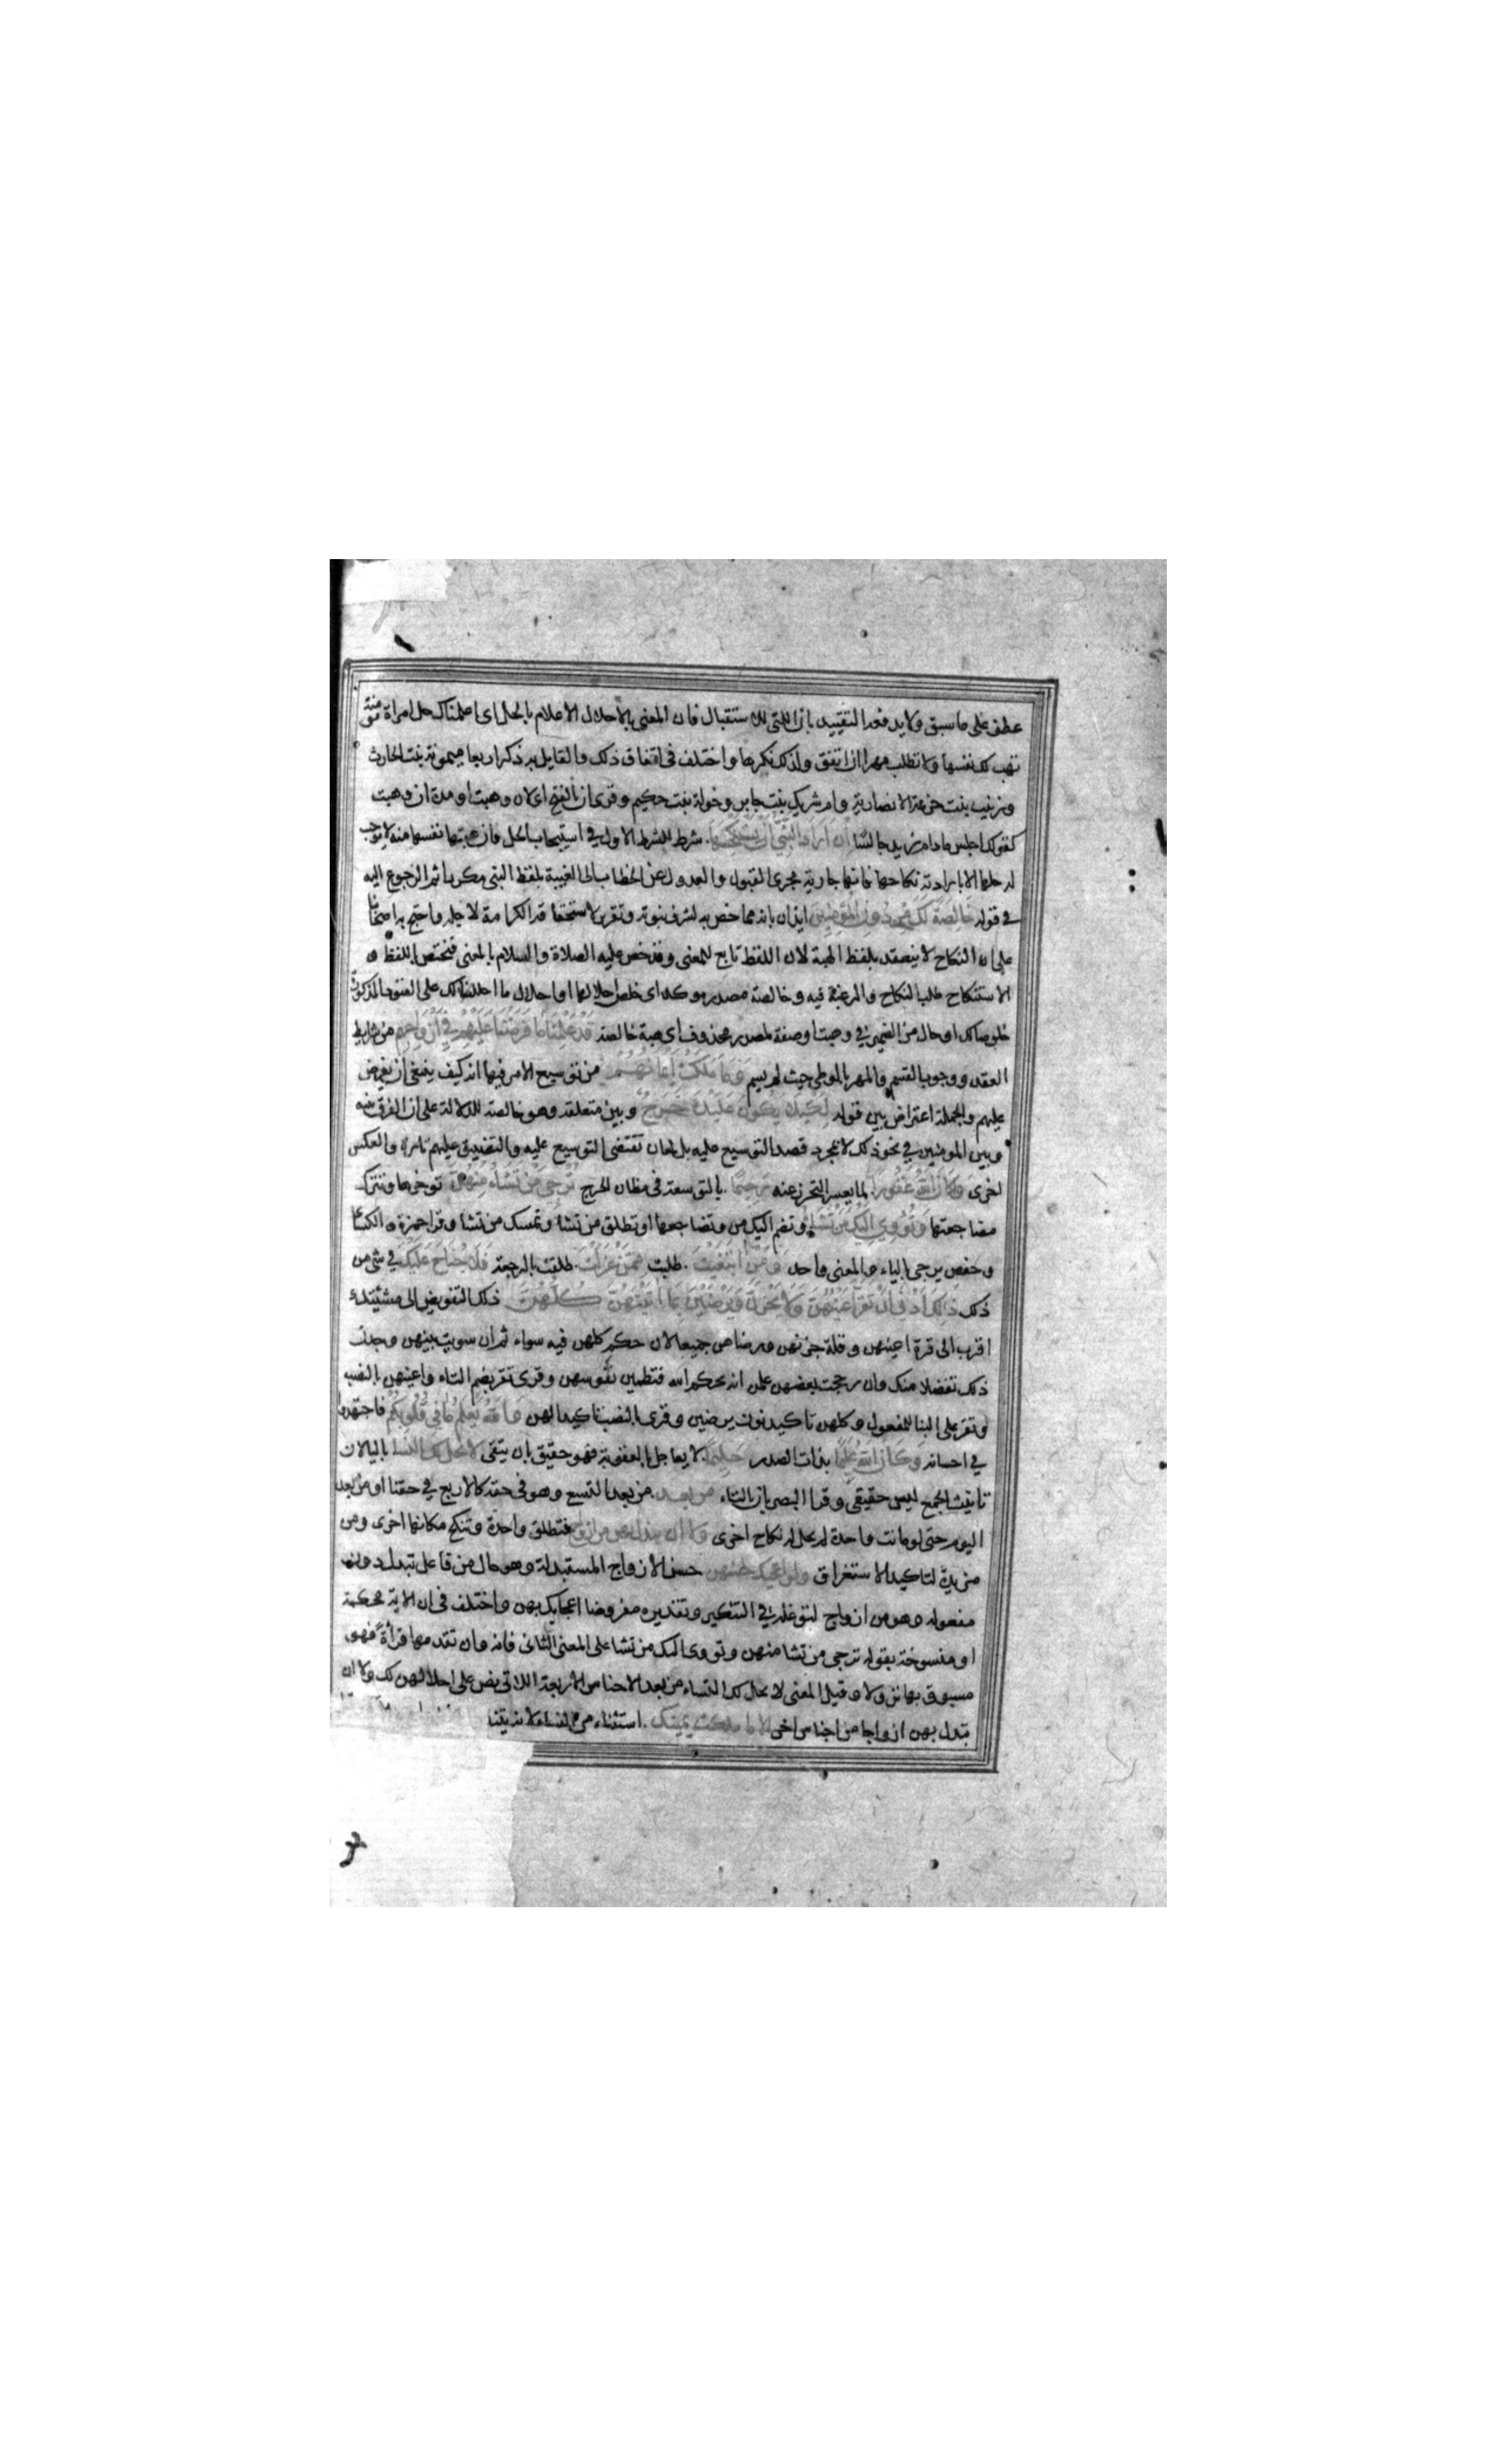 عطف على ما سبق ولا يدفعه التقييد بان اللتي للاستقبال فان المعنى بالاحلال الاعلام بالحل اى اعلمناك حل امراة مؤمنة
تهب لك نفسها ولا تطلب مهرا ان اتفق ولذلك نكرها واختلف فى اتفاق ذلك والقايل به ذكر اربعا ميمونة بنت الحارث
وزينب بنت خزيمة الانصارية وام شريك بنت جابر وخولة بنت حكيم وقرى ان بالفتح اى لان وهبت او مدة ان وهبت
كقولك اجلس ما دام زيد جالسا ان اراد النبي ان يستنكحها شرط للشرط الاول في استيجاب الحل فان هبتها نفسها منه لا توجب
له حلها الا بارادته نكاحها فانها جارية مجرى القبول والعدول عن الخطاب الى الغيبة بلفظ النبى مكررا ثم الرجوع اليه
في قوله خالصة لك من دون المؤمنين ايذان بانه مما خص به لشرف نبوته وتقرير لاستحقاقه الكرامة لاجله واحتج به اصحابنا
على ان النكاح لا ينعقد بلفظ الهبة لان اللفظ تابع للمعنى وقد خص عليه الصلاة والسلام بالمعنى فيختص باللفظ و
الاستنكاح طلب النكاح والرغبة فيه وخالصة مصدر موكد اى خلص احلالها او احلال ما احللنا لك على القيود المذكورة
خلوصا لك او حال من الضمير في وهبت او صفة لمصدر محذوف اى هبة خالصة قد علمنا ما فرضنا عليهم في ازواجهم من شرايط
العقد ووجوب القسم والمهر بالوطى حيث لم يسم وما ملكت ايمانهم من توسيع الامر فيها انه كيف ينبغى ان يفرض
عليهم والجملة اعتراض بين قوله لكيلا يكون عليك حرج وبين متعلقه وهو خالصة للدلالة على ان الفرق بينه
وبين المومنين في نحو ذلك لا لمجرد قصد التوسيع عليه بل لمعان تقتضى التوسيع عليه والتضييق عليهم تارة والعكس
اخرى وكان الله غفورا لما يعسر التحرز عنه رحيما بالتوسعة فى مظان الحرج ترجى من تشاء منهن توخرها وتترك
مضاجعتها وتؤوى اليك من تشاء وتضم اليك من وتضاجعها او تطلق من تشا وتمسك من تشا وقرا حمزة والكسائى
وحفص يرجى بالياء والمعنى واحد ومن ابتغيت طلبت ممن عزلت طلقت بالرجعة فلا جناح عليك في شى من
ذلك ذلك ادنى ان تقر اعينهن ولا يحزن ويرضين بما اتيتهن كلهن ذلك التفويض الى مشيئتك
اقرب الى قرة اعينهن وقلة حزنهن ورضاهن جميعا لان حكم كلهن فيه سواء ثم ان سويت بينهن وجدن
ذلك تفضلا منك وان رجحت بعضهن علمن انه بحكم الله فتطمين نفوسهن وقرى تقر بضم التاء واعينهن بالنصب
وتقر على البنا للمفعول وكلهن تاكيد نون يرضين وقرى بالنصب تاكيدا لهن والله يعلم ما في قلوبكم فاجتهدوا
في احسانه وكان الله عليما بذات الصدور حليما لا يعاجل بالعقوبة فهو حقيق بان يتقى لا يحل لك النسا باليا لان
تانيث الجمع ليس حقيقى وقرا البصريان بالتاء من بعد من بعد التسع وهو فى حقه كالاربع في حقنا او من بعد
اليوم حتى لو ماتت واحدة لم يحل له نكاح اخرى ولا ان تبدل بهن من ازواج فتطلق واحدة وتنكح مكانها اخرى ومن
مزيدة لتاكيد الاستغراق ولو اعجبك حسنهن حسن الازواج المستبدلة وهو حال من فاعل تبدل دون
مفعوله وهو من ازواج لتوغله في التنكير وتقديره مفروضا اعجابك بهن واختلف فى ان الاية محكمة
او منسوخة بقوله ترجى من تشا منهن وتووى اليك من تشا على المعنى الثانى فانه وان تقدمها قراة فهو
مسبوق بها نزولا وقيل المعنى لا يحل لك النساء من بعد الاجناس الاربعة اللاتى نص على احلالهن لك ولا ان
تبدل بهن ازواجا من اجناس اخر الا ما ملكت يمينك استثناء من النساء لانه